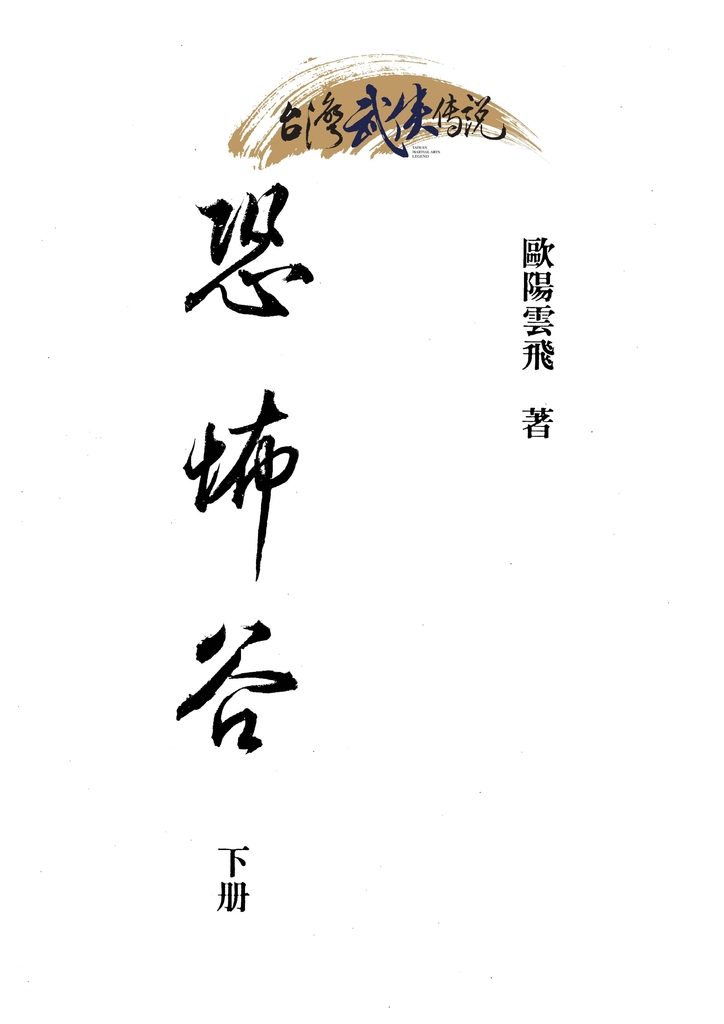 台灣武俠傳説
TAIWAN
MARTIAL ARTS
LEGEND
歐陽雲飛 著
恐怖谷
下册